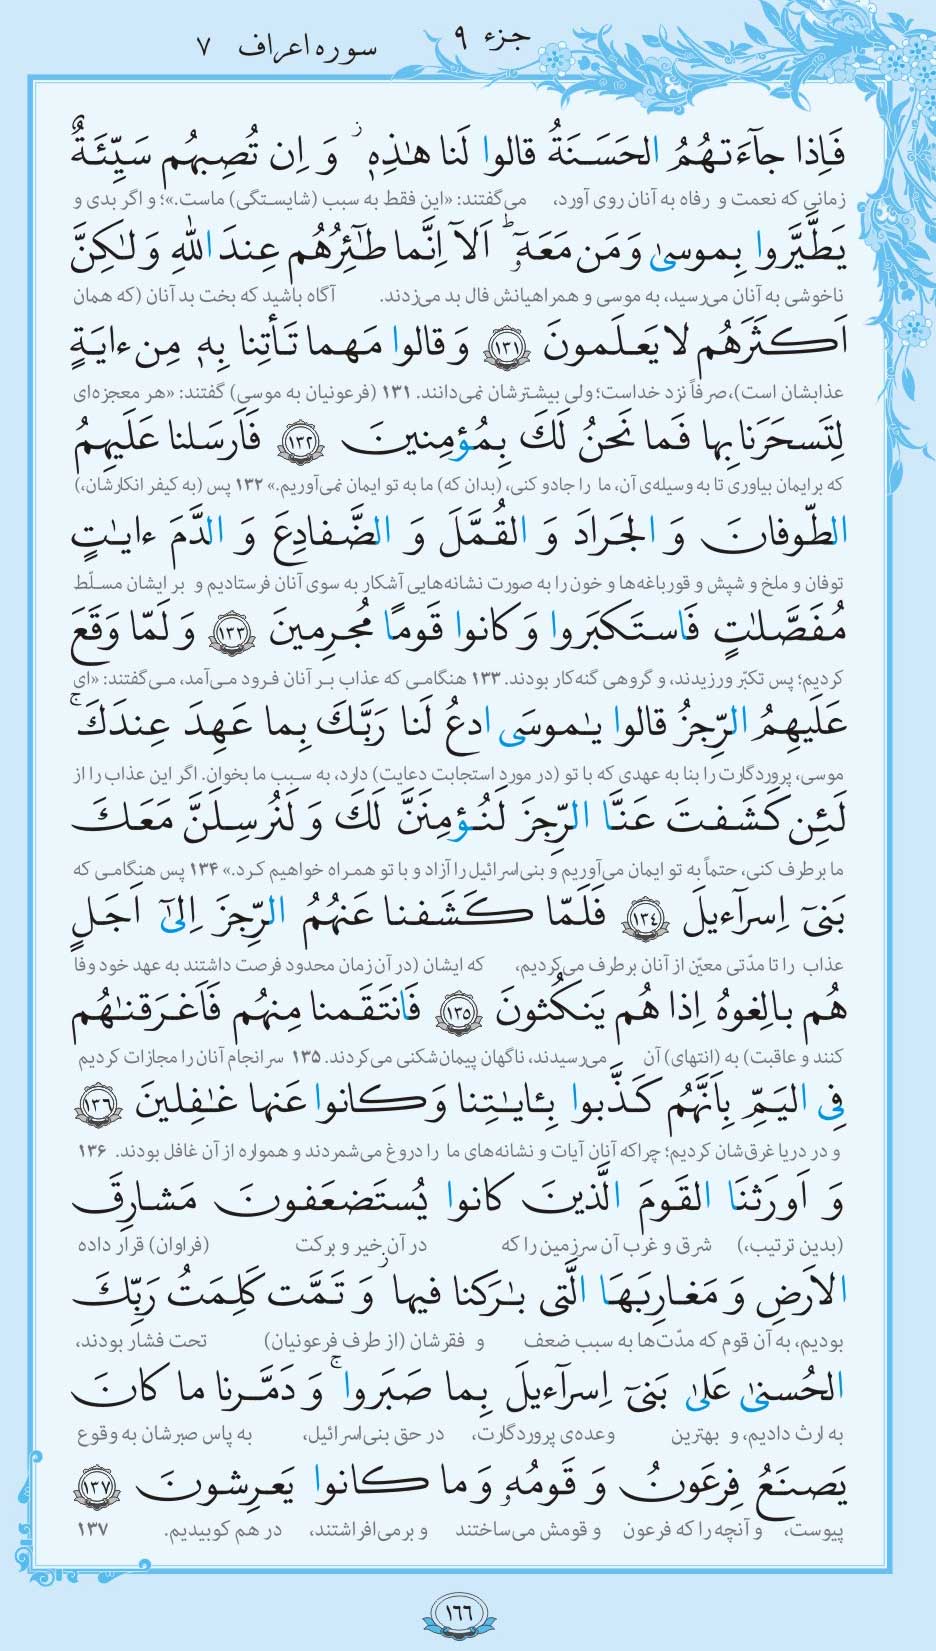 جزء ۹
سوره اعراف ۷
فَاِذا جآءَتهُمُ الحَسَنَةُ قالوا لَنا هٰذِهٖ ز وَ اِن تُصِبهُم سَيِّئَةٌ
زمانی که نعمت و رفاه به آنان روی آورد، می‌گفتند: «این فقط به سبب (شایستگی) ماست.»؛ و اگر بدی و
يَطَّيَّروا بِموسىٰ وَ مَن مَعَهٗ ط اَلآ اِنَّما طآئِرُهُم عِندَ اللهِ وَ لٰكِنَّ
ناخوشی به آنان می‌رسید، به موسی و همراهیانش فال بد می‌زدند. آگاه باشید که بخت بد آنان (که همان
اَكثَرَهُم لا يَعلَمونَ ﴿١٣١﴾ وَ قالوا مَهما تَأتِنا بِهٖ مِن ءايَةٍ
عذابشان است)، صرفاً نزد خداست؛ ولی بیشترشان نمی‌دانند. ۱۳۱ (فرعونیان به موسی) گفتند: «هر معجزه‌ای
لِتَسحَرَنا بِها فَما نَحنُ لَكَ بِمُؤمِنينَ ﴿١٣٢﴾ فَاَرسَلنا عَلَيهِمُ
که برایمان بیاوری تا به وسیله‌ی آن، ما را جادو کنی، (بدان که) ما به تو ایمان نمی‌آوریم.» ۱۳۲ پس (به کیفر انکارشان،)
الطّوفانَ وَ الجَرادَ وَ القُمَّلَ وَ الضَّفادِعَ وَ الدَّمَ ءايٰتٍ
توفان و ملخ و شپش و قورباغه‌ها و خون را به صورت نشانه‌هایی آشکار به سوی آنان فرستادیم و بر ایشان مسلّط
مُفَصَّلٰتٍ فَاستَكبَروا وَ كانوا قَومًا مُجرِمينَ ﴿١٣٣﴾ وَ لَمّا وَقَعَ
کردیم؛ پس تکبّر ورزیدند، و گروهی گنه‌کار بودند. ۱۳۳ هنگامی که عذاب بر آنان فرود می‌آمد، می‌گفتند: «ای
عَلَيهِمُ الرِّجزُ قالوا يٰموسَى ادعُ لَنا رَبَّكَ بِما عَهِدَ عِندَكَ ۚ
موسی، پروردگارت را بنا به عهدی که با تو (در مورد استجابت دعایت) دارد، به سبب ما بخوان. اگر این عذاب را از
لَئِن كَشَفتَ عَنَّا الرِّجزَ لَنُؤمِنَنَّ لَكَ وَ لَنُرسِلَنَّ مَعَكَ
ما برطرف کنی، حتماً به تو ایمان می‌آوریم و بنی‌اسرائیل را آزاد و با تو همراه خواهیم کرد.» ۱۳۴ پس هنگامی که
بَنىٓ اِسرآءيلَ ﴿١٣٤﴾ فَلَمّا كَشَفنا عَنهُمُ الرِّجزَ اِلىٰٓ اَجَلٍ
عذاب را تا مدّتی معیّن از آنان برطرف می‌کردیم، که ایشان (در آن زمان محدود فرصت داشتند به عهد خود وفا
هُم بالِغوهُ اِذا هُم يَنكُثونَ ﴿١٣٥﴾ فَانتَقَمنا مِنهُم فَاَغرَقنٰهُم
کنند و عاقبت) به (انتهای) آن می‌رسیدند، ناگهان پیمان‌شکنی می‌کردند. ۱۳۵ سرانجام آنان را مجازات کردیم
فِى اليَمِّ بِاَنَّهُم كَذَّبوا بِـٔايٰتِنا وَ كانوا عَنها غٰفِلينَ ﴿١٣٦﴾
و در دریا غرق‌شان کردیم؛ چراکه آنان آیات و نشانه‌های ما را دروغ می‌شمردند و همواره از آن غافل بودند. ۱۳۶
وَ اَورَثنَا القَومَ الَّذينَ كانوا يُستَضعَفونَ مَشارِقَ
(بدین ترتیب،) شرق و غرب آن سرزمین را که در آن خیر و برکت (فراوان) قرار داده
الاَرضِ وَ مَغارِبَهَا الَّتى بٰرَكنا فيها ز وَ تَمَّت كَلِمَتُ رَبِّكَ
بودیم، به آن قوم که مدّت‌ها به سبب ضعف و فقرشان (از طرف فرعونیان) تحت فشار بودند،
الحُسنىٰ عَلىٰ بَنىٓ اِسرآءيلَ بِما صَبَروا ۚ وَ دَمَّرنا ما كانَ
به ارث دادیم، و بهترین وعده‌ی پروردگارت، در حق بنی‌اسرائیل، به پاس صبرشان به وقوع
يَصنَعُ فِرعَونُ وَ قَومُهٗ وَ ما كانوا يَعرِشونَ ﴿١٣٧﴾
پیوست، و آنچه را که فرعون و قومش می‌ساختند و برمی‌افراشتند، در هم کوبیدیم. ۱۳۷
١٦٦